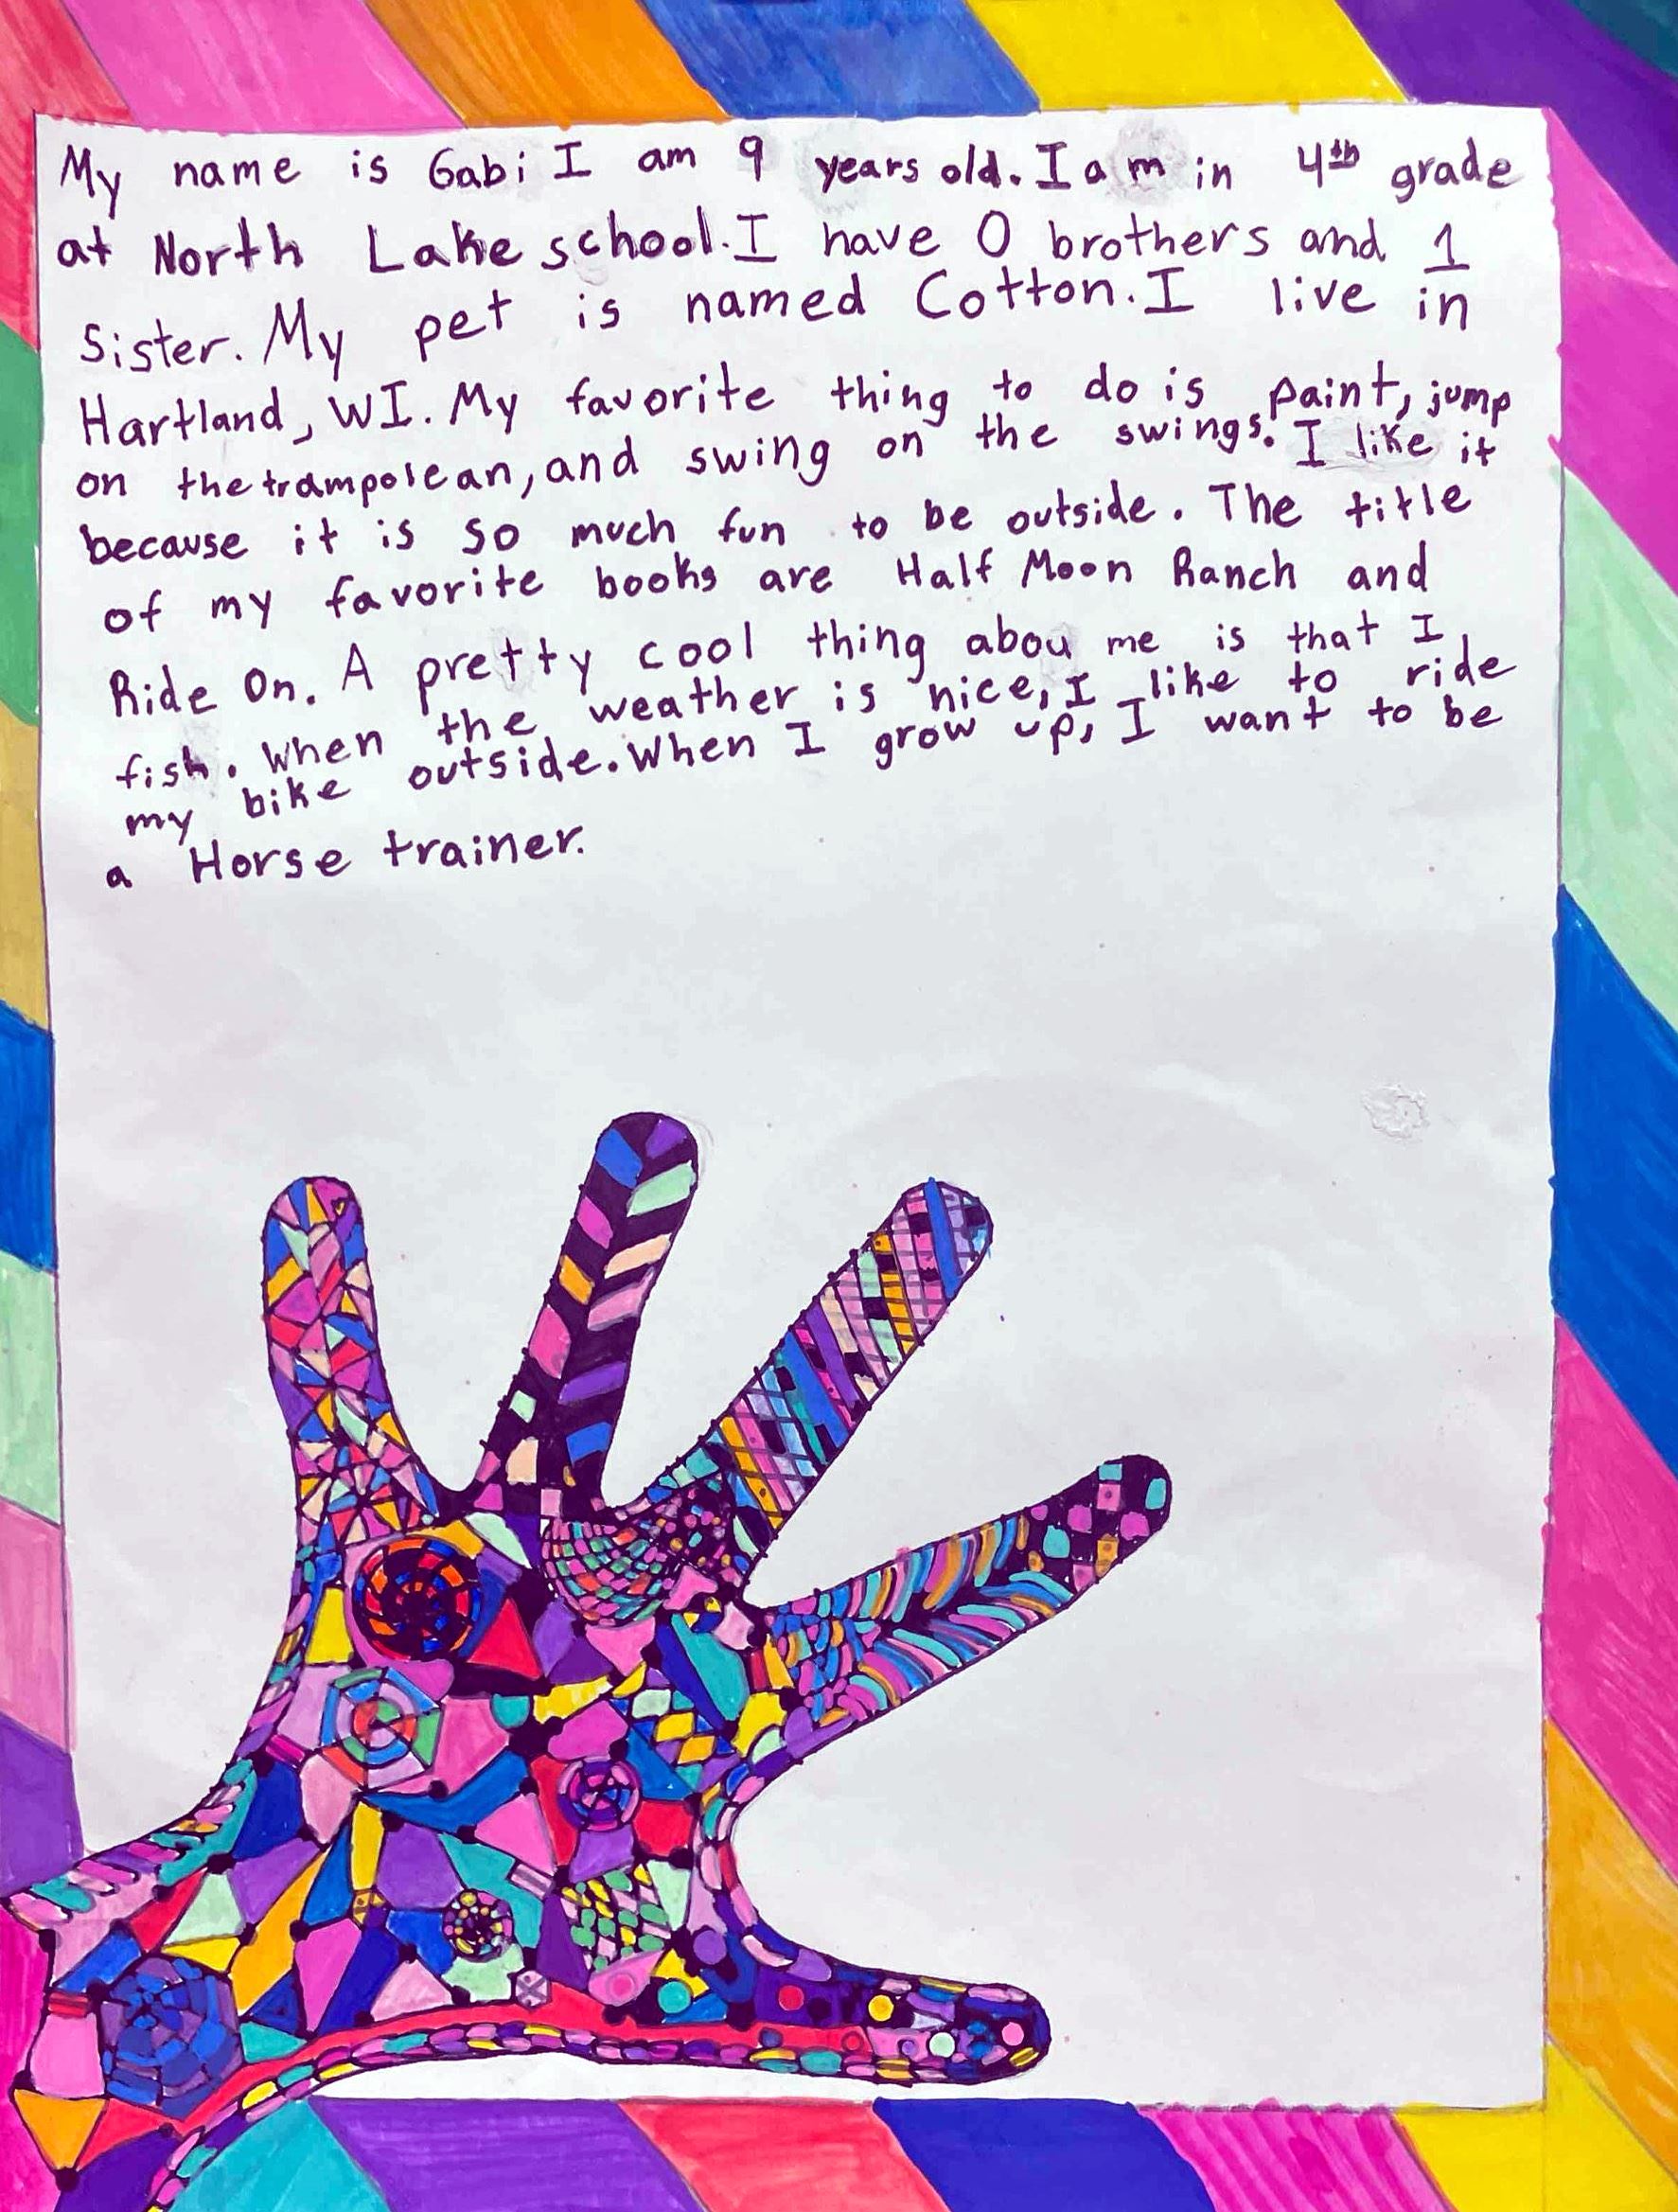 My name is Gabi I am 9 years old. I am in 4th grade
at North Lake school. I have 0 brothers and 1
Sister. My pet is named Cotton. I live in
Hartland, WI. My favorite thing to do is paint, jump
on the trampolean, and swing on the swings. I like it
because it is so much fun to be outside. The title
of my favorite books are Half Moon Ranch and
Ride On. A pretty cool thing abou me is that I
fish. When the weather is nice, I like to ride
my bike outside. When I grow up, I want to be
a Horse trainer.